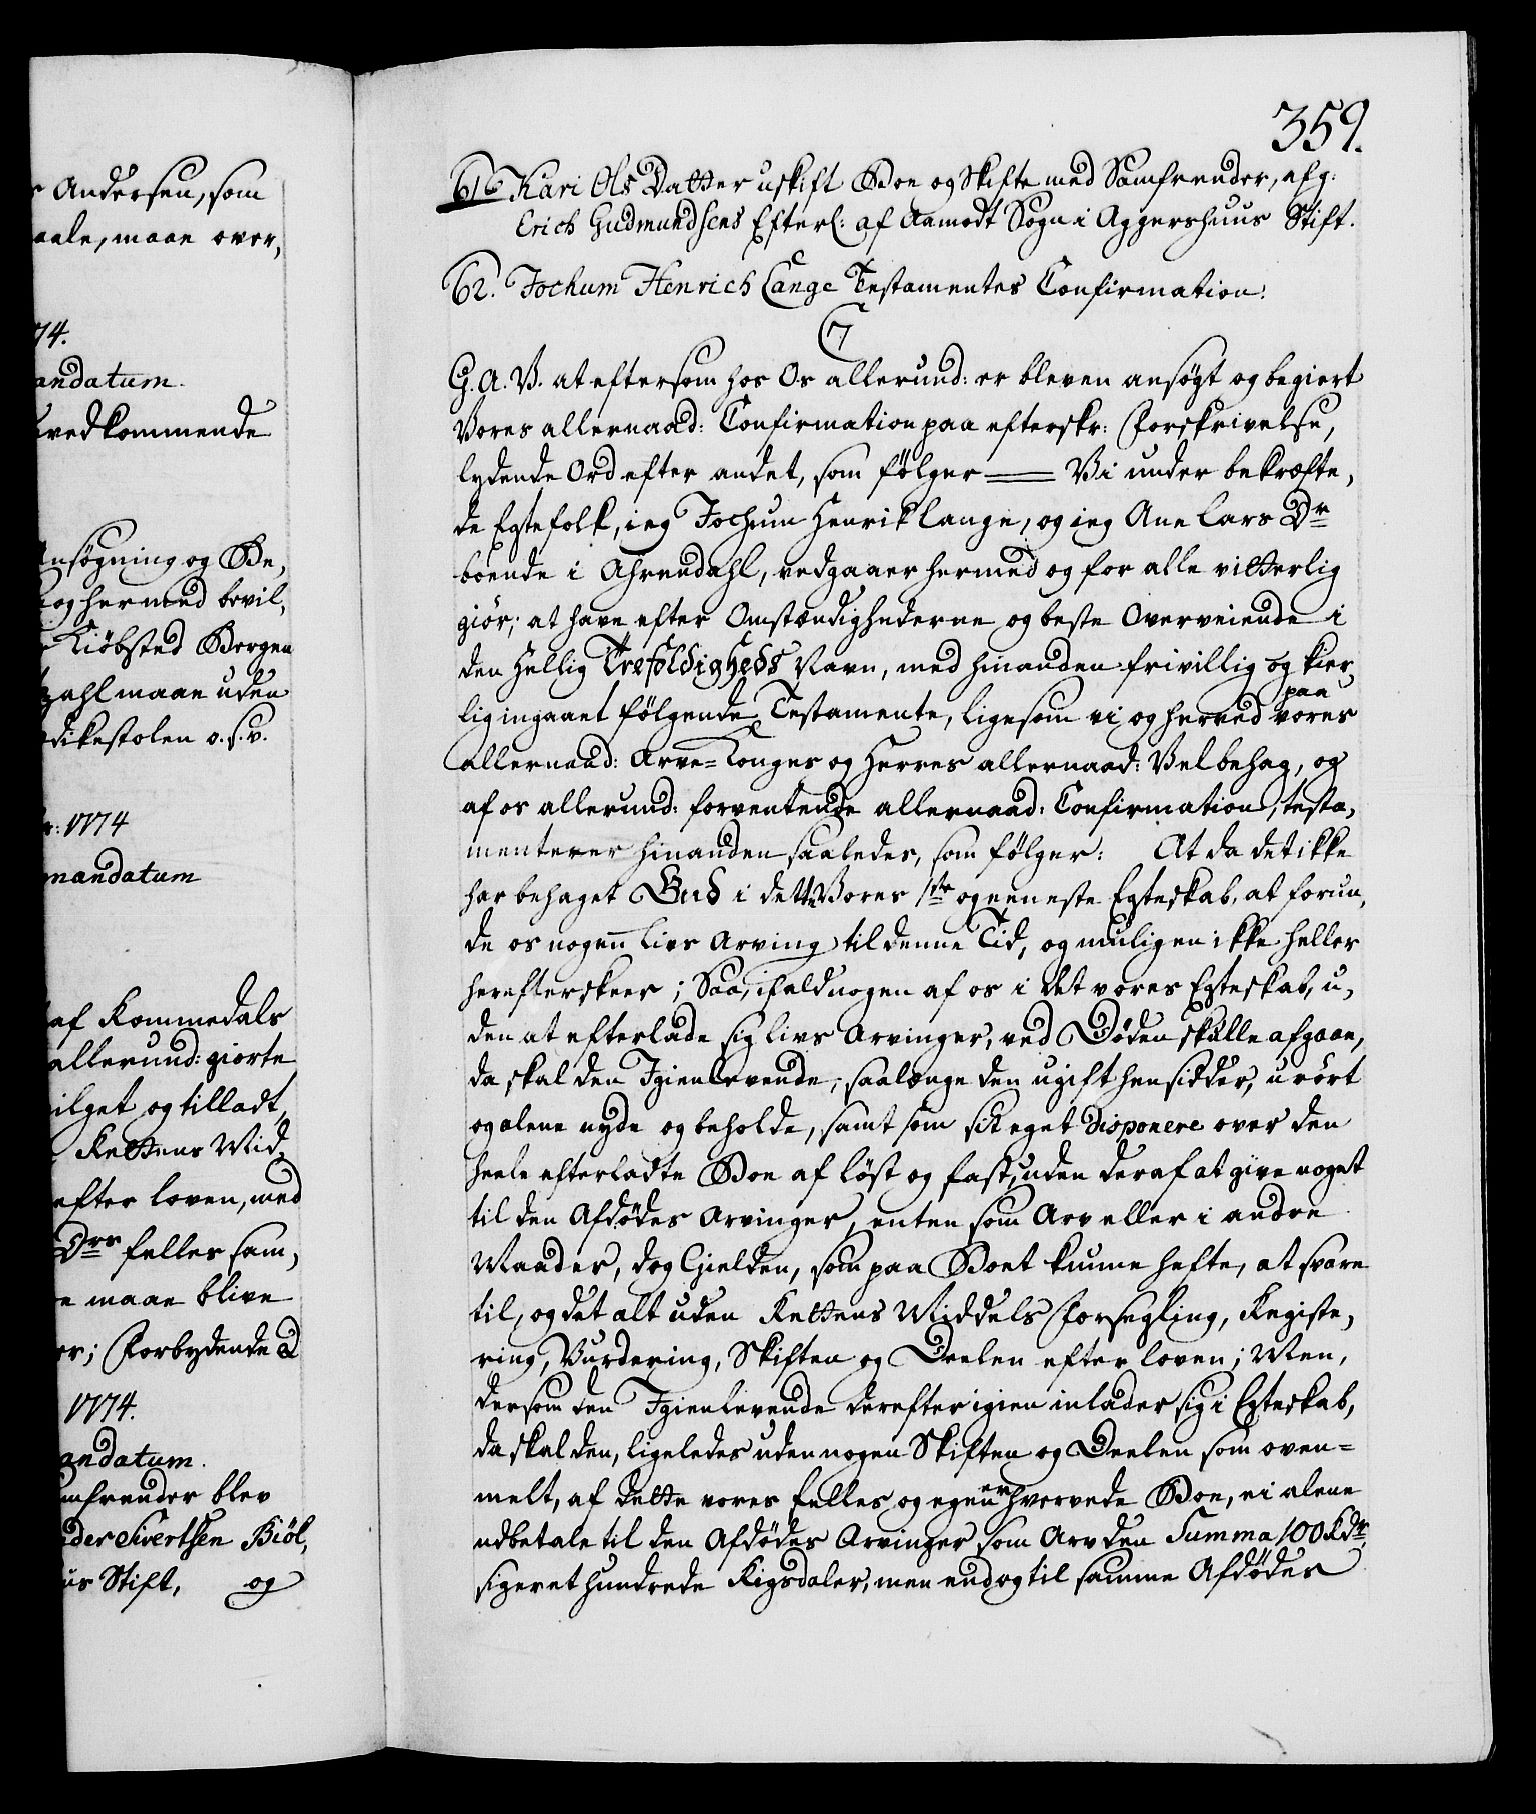 r Andersen, som
aale, maae over,
74.
andatum.
vedkommende
nsøgning og Be,
og hermed bevil,
Kiøbsted Bergen
zahl maae uden
dikestolen o.s.v.
r: 1774
mandatum
af Rommedals
allerund: giorte
ilget og tilladt,
Rettens Mid,
efter Loven, med
Drs felles sam,
e maae blive
er; Forbydende
1774.
andatum.
mfrender blev
der Sivertsen Biöl,
us Stift, og
359.
61. Kari Ols Datter uskift Boe og Skifte med Samfrender, afg:
Erich Gudmundsens Efterl: af Aamodt Sogn i Aggershuus Stift.
62. Jochum Henrich Lange Testamentes Confirmation.
C7
G. A. V. at eftersom hos Os allerund: er bleven ansøgt og begiert
Vores allernaad: Confirmation paa efterskr: Forskrivelse,
lydende Ord efter andet, som følger == Vi under bekræfte,
de Egtefolk, ieg Jochum Henrik Lange, og ieg Ane Lars Dr
boende i Ahrendahl, vedgaaer hermed og for alle vitterlig
giör; at have efter Omstændighederne og beste Overveiende i
den Hellig Trefoldigheds Navn, med hinanden frivillig og kier,
lig ingaaet følgende Testamente, ligesom vi og herved paa vores
allernaad: Arve-Konges og Herres allernaad: Velbehag, og
af os allerund: forventende allernaad: Confirmation, testa,
menterer hinanden saaledes, som følger: At da det ikke
har behaget Gud i dette Vores 1ste og eeneste Egteskab, at forun,
de os nogen Livs Arving til denne Tid, og muligen ikke heller
herefter skeer; Saa, ifald nogen af os i det vores Egteskab, u,
den at efterlade sig Livs Arvinger, ved Døden skulle afgaae,
da skal den Igienlevende, saalænge den ugift hensidder, urört
og alene nyde og beholde, samt som sit eget disponere over den
heele efterladte Boe af løst og fast, uden deraf at give noget
til den Afdødes Arvinger, enten som Arv eller i andre
Maader, dog Gielden, som paa Boet kunne hefte, at svare
til, og det alt uden Rettens Middels Forsegling, Registe,
ring, Vurdering, Skiften og Deelen efter Loven; Men,
dersom den Igienlevende derefter igien inlader sig i Egteskab,
da skal den, ligeledes uden nogen Skiften og Deelen som oven=
melt, af dette vores felles og egen erhvervede Boe, ei alene
udbetale til den Afdødes Arvinger som Arv den Summa 100 Rdr,
siger et hundrede Rigsdaler, men endog til samme Afdødes